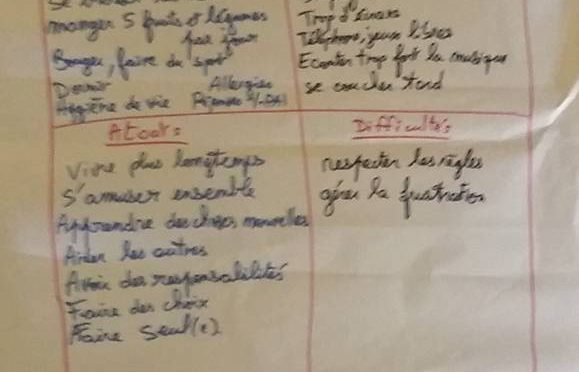 manger 5 fruits et légumes
par jour
Bouger, faire du sport
Dormir Allergies
Hygiène de vie Repenser
Trop d'écrans
Téléphone, jeux
Ecouter trop fort la musique
se coucher tard
Atouts
Vivre plus longtemps
S'amuser ensemble
Apprendre des choses nouvelles
Aider les autres
Avoir des responsabilités
Faire des choix
Faire seul(e)
Difficultés
respecter les règles
gérer la frustration